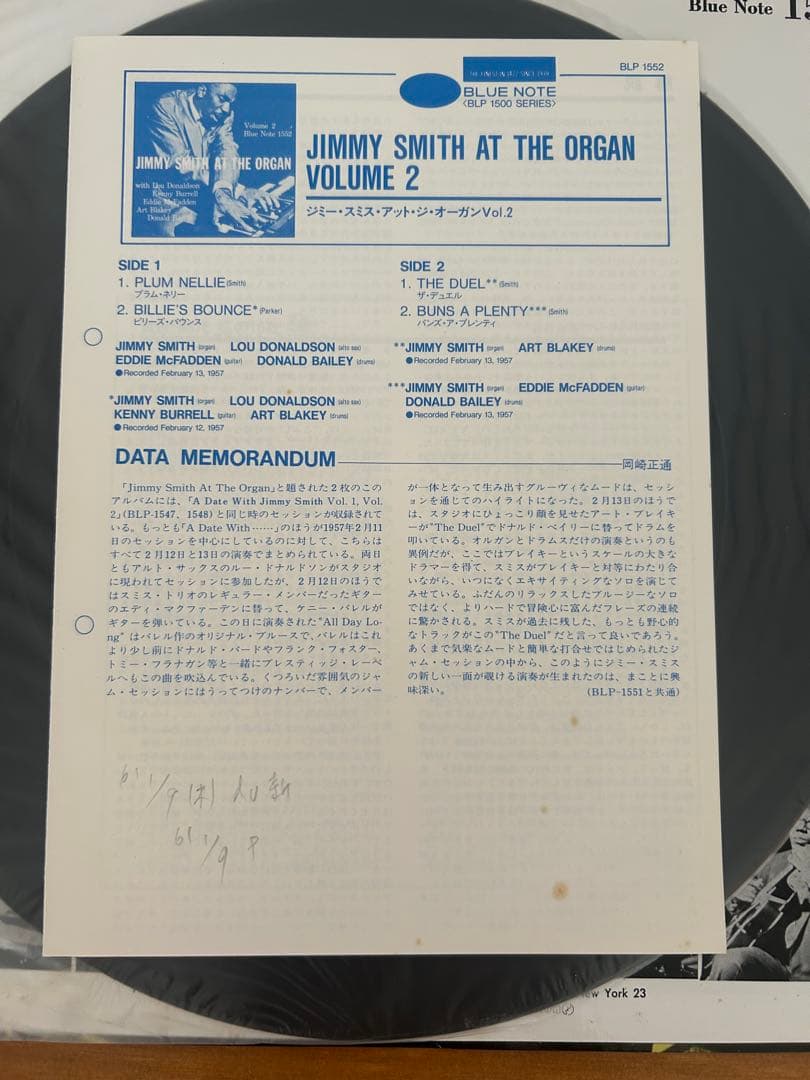 Blue Note 15
BLP 1552
THE FINEST IN JAZZ SINCE 1939
BLUE NOTE
〈BLP 1500 SERIES〉
Volume 2
Blue Note 1552
JIMMY SMITH AT THE ORGAN
with Lou Donaldson
Kenny Burrell
Eddie McFadden
Art Blakey
Donald Bailey
JIMMY SMITH AT THE ORGAN
VOLUME 2
ジミー・スミス・アット・ジ・オーガンVol.2
SIDE 1
1. PLUM NELLIE (Smith)
プラム・ネリー
2. BILLIE'S BOUNCE* (Parker)
ビリーズ・バウンス
JIMMY SMITH (organ) LOU DONALDSON (alto sax)
EDDIE McFADDEN (guitar) DONALD BAILEY (drums)
●Recorded February 13, 1957
*JIMMY SMITH (organ) LOU DONALDSON (alto sax)
KENNY BURRELL (guitar) ART BLAKEY (drums)
●Recorded February 12, 1957
SIDE 2
1. THE DUEL** (Smith)
ザ・デュエル
2. BUNS A PLENTY*** (Smith)
バンズ・ア・プレンティ
**JIMMY SMITH (organ) ART BLAKEY (drums)
●Recorded February 13, 1957
***JIMMY SMITH (organ) EDDIE McFADDEN (guitar)
DONALD BAILEY (drums)
●Recorded February 13, 1957
DATA MEMORANDUM
岡崎正通
「Jimmy Smith At The Organ」と題された2枚のこの
アルバムには、「A Date With Jimmy Smith Vol. 1, Vol.
2」(BLP-1547, 1548)と同じ時のセッションが収録されて
いる。もっとも「A Date With……」のほうが1957年2月11
日のセッションを中心にしているのに対して、こちらは
すべて2月12日と13日の演奏でまとめられている。両日
ともアルト・サックスのルー・ドナルドソンがスタジオ
に現われてセッションに参加したが、2月12日のほうで
はスミス・トリオのレギュラー・メンバーだったギター
のエディ・マクファーデンに替って、ケニー・バレルが
ギターを弾いている。この日に演奏された"All Day Lo-
ng" はバレル作のオリジナル・ブルースで、バレルはこれ
より少し前にドナルド・バードやフランク・フォスター、
トミー・フラナガン等と一緒にプレスティッジ・レーベ
ルへもこの曲を吹込んでいる。くつろいだ雰囲気のジャ
ム・セッションにはうってつけのナンバーで、メンバー
が一体となって生み出すグルーヴィなムードは、セッシ
ョンを通じてのハイライトになった。2月13日のほうで
は、スタジオにひょっこり顔を見せたアート・ブレイキ
ーが"The Duel"でドナルド・ベイリーに替ってドラムを
叩いている。オルガンとドラムスだけの演奏というのも
異例だが、ここではブレイキーというスケールの大きな
ドラマーを得て、スミスがブレイキーと対等にわたり合
いながら、いつになくエキサイティングなソロを演じて
みせている。ふだんのリラックスしたブルージーなソロ
ではなく、よりハードで冒険心に富んだフレーズの連続
に驚かされる。スミスが過去に残した、もっとも野心的
なトラックがこの"The Duel"だと言って良いであろう。
あくまで気楽なムードと簡単な打合せではじめられたジ
ャム・セッションの中から、このようにジミー・スミス
の新しい一面が覗ける演奏が生まれたのは、まことに興
味深い。
(BLP-1551と共通)
61 1/9 (木)
61 1/9 P
ew York 23